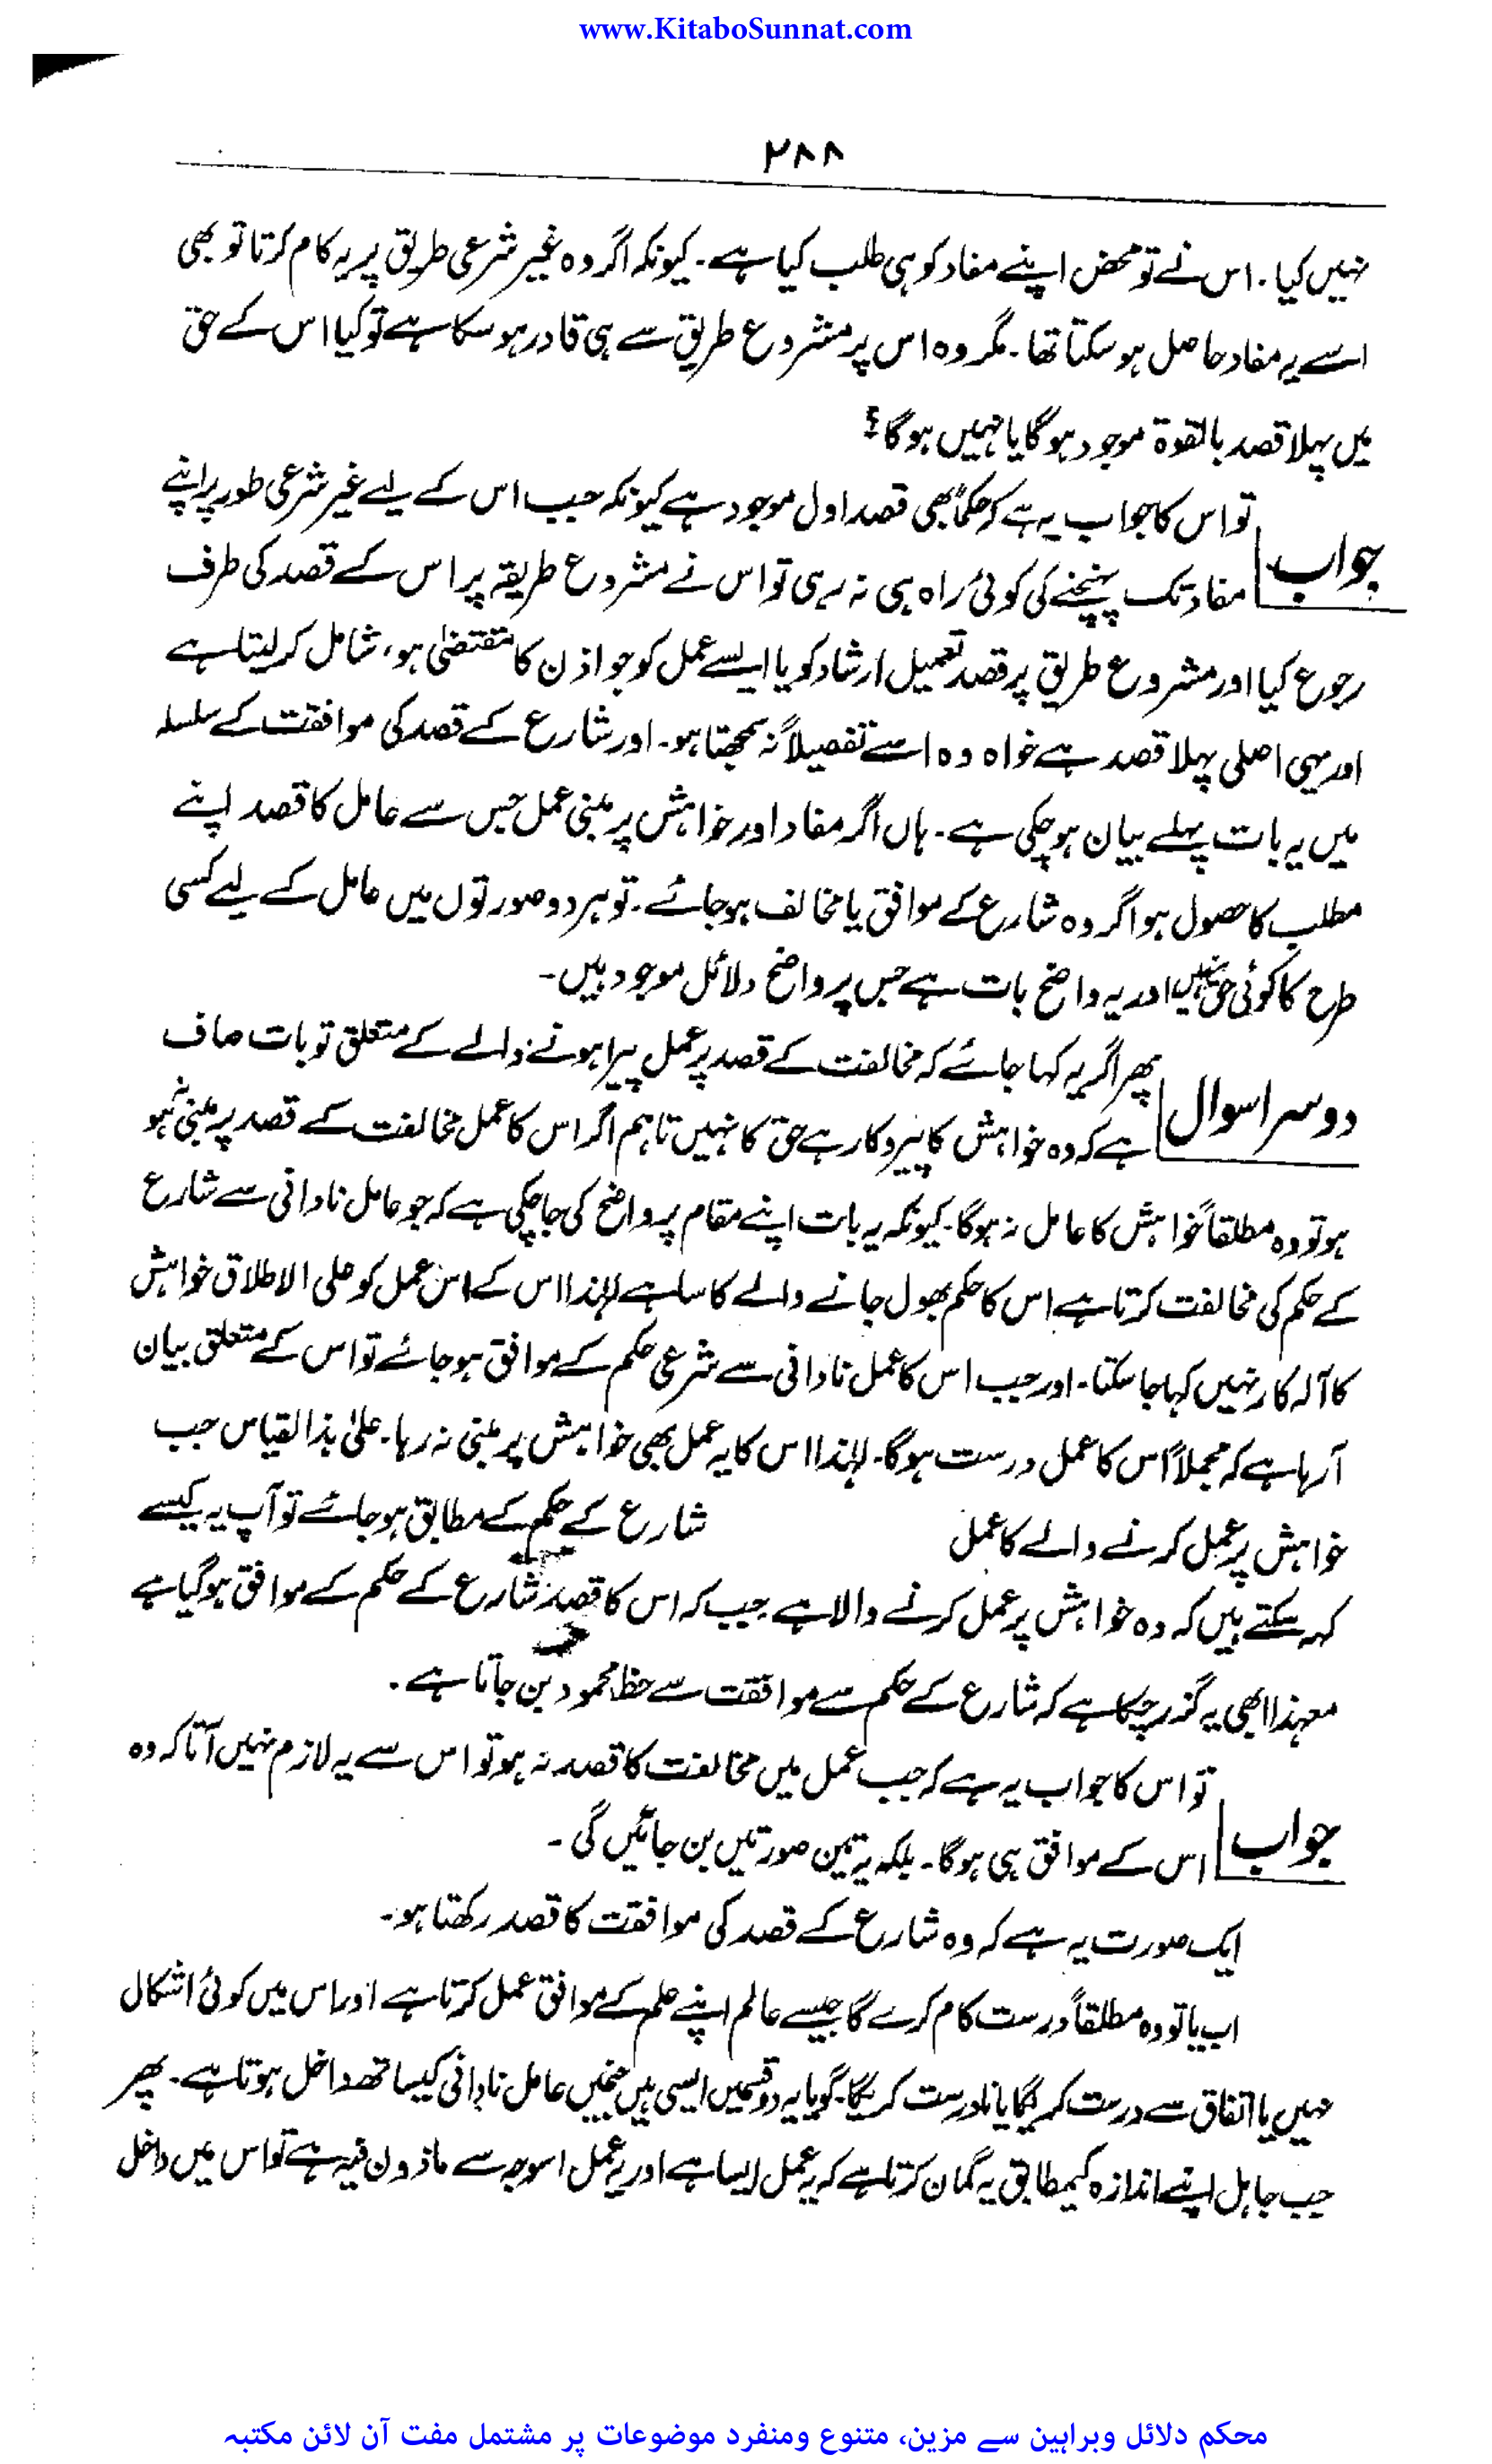 www.KitaboSunnat.com
۲۸۸
نہیں کیا۔ اس نے تو محض اپنے مفاد کو ہی طلب کیا ہے۔ کیونکہ اگر وہ غیر شرعی طریق پر یہ کام کرتا تو بھی
اسے یہ مفاد حاصل ہو سکتا تھا۔ مگر وہ اس پر مشروع طریق سے ہی قادر ہو سکا ہے تو کیا اس کے حق
میں پہلا قصد بالقوۃ موجود ہوگا یا نہیں ہوگا؟
جواب
تو اس کا جواب یہ ہے کہ حکماً بھی قصد اول موجود ہے کیونکہ جب اس کے لیے غیر شرعی طور پر اپنے
مفاد تک پہنچنے کی کوئی راہ ہی نہ رہی تو اس نے مشروع طریقہ پر اس کے قصد کی طرف
رجوع کیا اور مشروع طریق پر قصد تعمیل ارشاد کو یا ایسے عمل کو جو اذن کا مقتضیٰ ہو، شامل کر لیتا ہے
اور یہی اصلی پہلا قصد ہے خواہ وہ اسے تفصیلاً نہ سمجھتا ہو۔ اور شارع کے قصد کی موافقت کے سلسلہ
میں یہ بات پہلے بیان ہو چکی ہے۔ ہاں اگر مفاد اور خواہش پر مبنی عمل جس سے عامل کا قصد اپنے
مطلب کا حصول ہو اگر وہ شارع کے موافق یا مخالف ہو جائے۔ تو ہر دو صورتوں میں عامل کے لیے کسی
طرح کا کوئی حق نہیں اور یہ واضح بات ہے جس پر واضح دلائل موجود ہیں۔
دوسرا سوال
پھر اگر یہ کہا جائے کہ مخالفت کے قصد پر عمل پیرا ہونے والے کے متعلق تو بات صاف
ہے کہ وہ خواہش کا پیروکار ہے حق کا نہیں تاہم اگر اس کا عمل مخالفت کے قصد پر مبنی نہ ہو
ہو تو وہ مطلقاً خواہش کا عامل نہ ہوگا۔ کیونکہ یہ بات اپنے مقام پر واضح کی جا چکی ہے کہ جو عامل نادانی سے شارع
کے حکم کی مخالفت کرتا ہے اس کا حکم بھول جانے والے کا سا ہے لہٰذا اس کے اس عمل کو علی الاطلاق خواہش
کا آلہ کار نہیں کہا جا سکتا۔ اور جب اس کا عمل نادانی سے شرعی حکم کے موافق ہو جائے تو اس کے متعلق بیان
آ رہا ہے کہ مجملاً اس کا عمل درست ہوگا۔ لہٰذا اس کا یہ عمل بھی خواہش پر مبنی نہ رہا۔ علیٰ ہذا القیاس جب
خواہش پر عمل کرنے والے کا عمل شارع کے حکم کے مطابق ہو جائے تو آپ یہ کیسے
کہہ سکتے ہیں کہ وہ خواہش پر عمل کرنے والا ہے جب کہ اس کا قصد شارع کے حکم کے موافق ہو گیا ہے
معہذا ابھی یہ گذر چکا ہے کہ شارع کے حکم سے موافقت سے حظ محمود بن جاتا ہے۔
جواب
تو اس کا جواب یہ ہے کہ جب عمل میں مخالفت کا قصد نہ ہو تو اس سے یہ لازم نہیں آتا کہ وہ
اس کے موافق ہی ہوگا۔ بلکہ یہ تین صورتیں بن جائیں گی۔
ایک صورت یہ ہے کہ وہ شارع کے قصد کی موافقت کا قصد رکھتا ہو۔
اب یا تو وہ مطلقاً درست کام کرے گا جیسے عالم اپنے علم کے موافق عمل کرتا ہے اور اس میں کوئی اشکال
نہیں یا اتفاق سے درست کریگا یا نادرست کریگا۔ گویا یہ دو قسمیں ایسی ہیں جنہیں عامل نادانی کیساتھ داخل ہوتا ہے۔ پھر
جب جاہل اپنے اندازہ کیمطابق یہ گمان کرتا ہے کہ یہ عمل ایسا ہے اور یہ عمل اسوجہ سے ماذون فیہ ہے تو اس میں داخل
محکم دلائل وبراہین سے مزین، متنوع ومنفرد موضوعات پر مشتمل مفت آن لائن مکتبہ